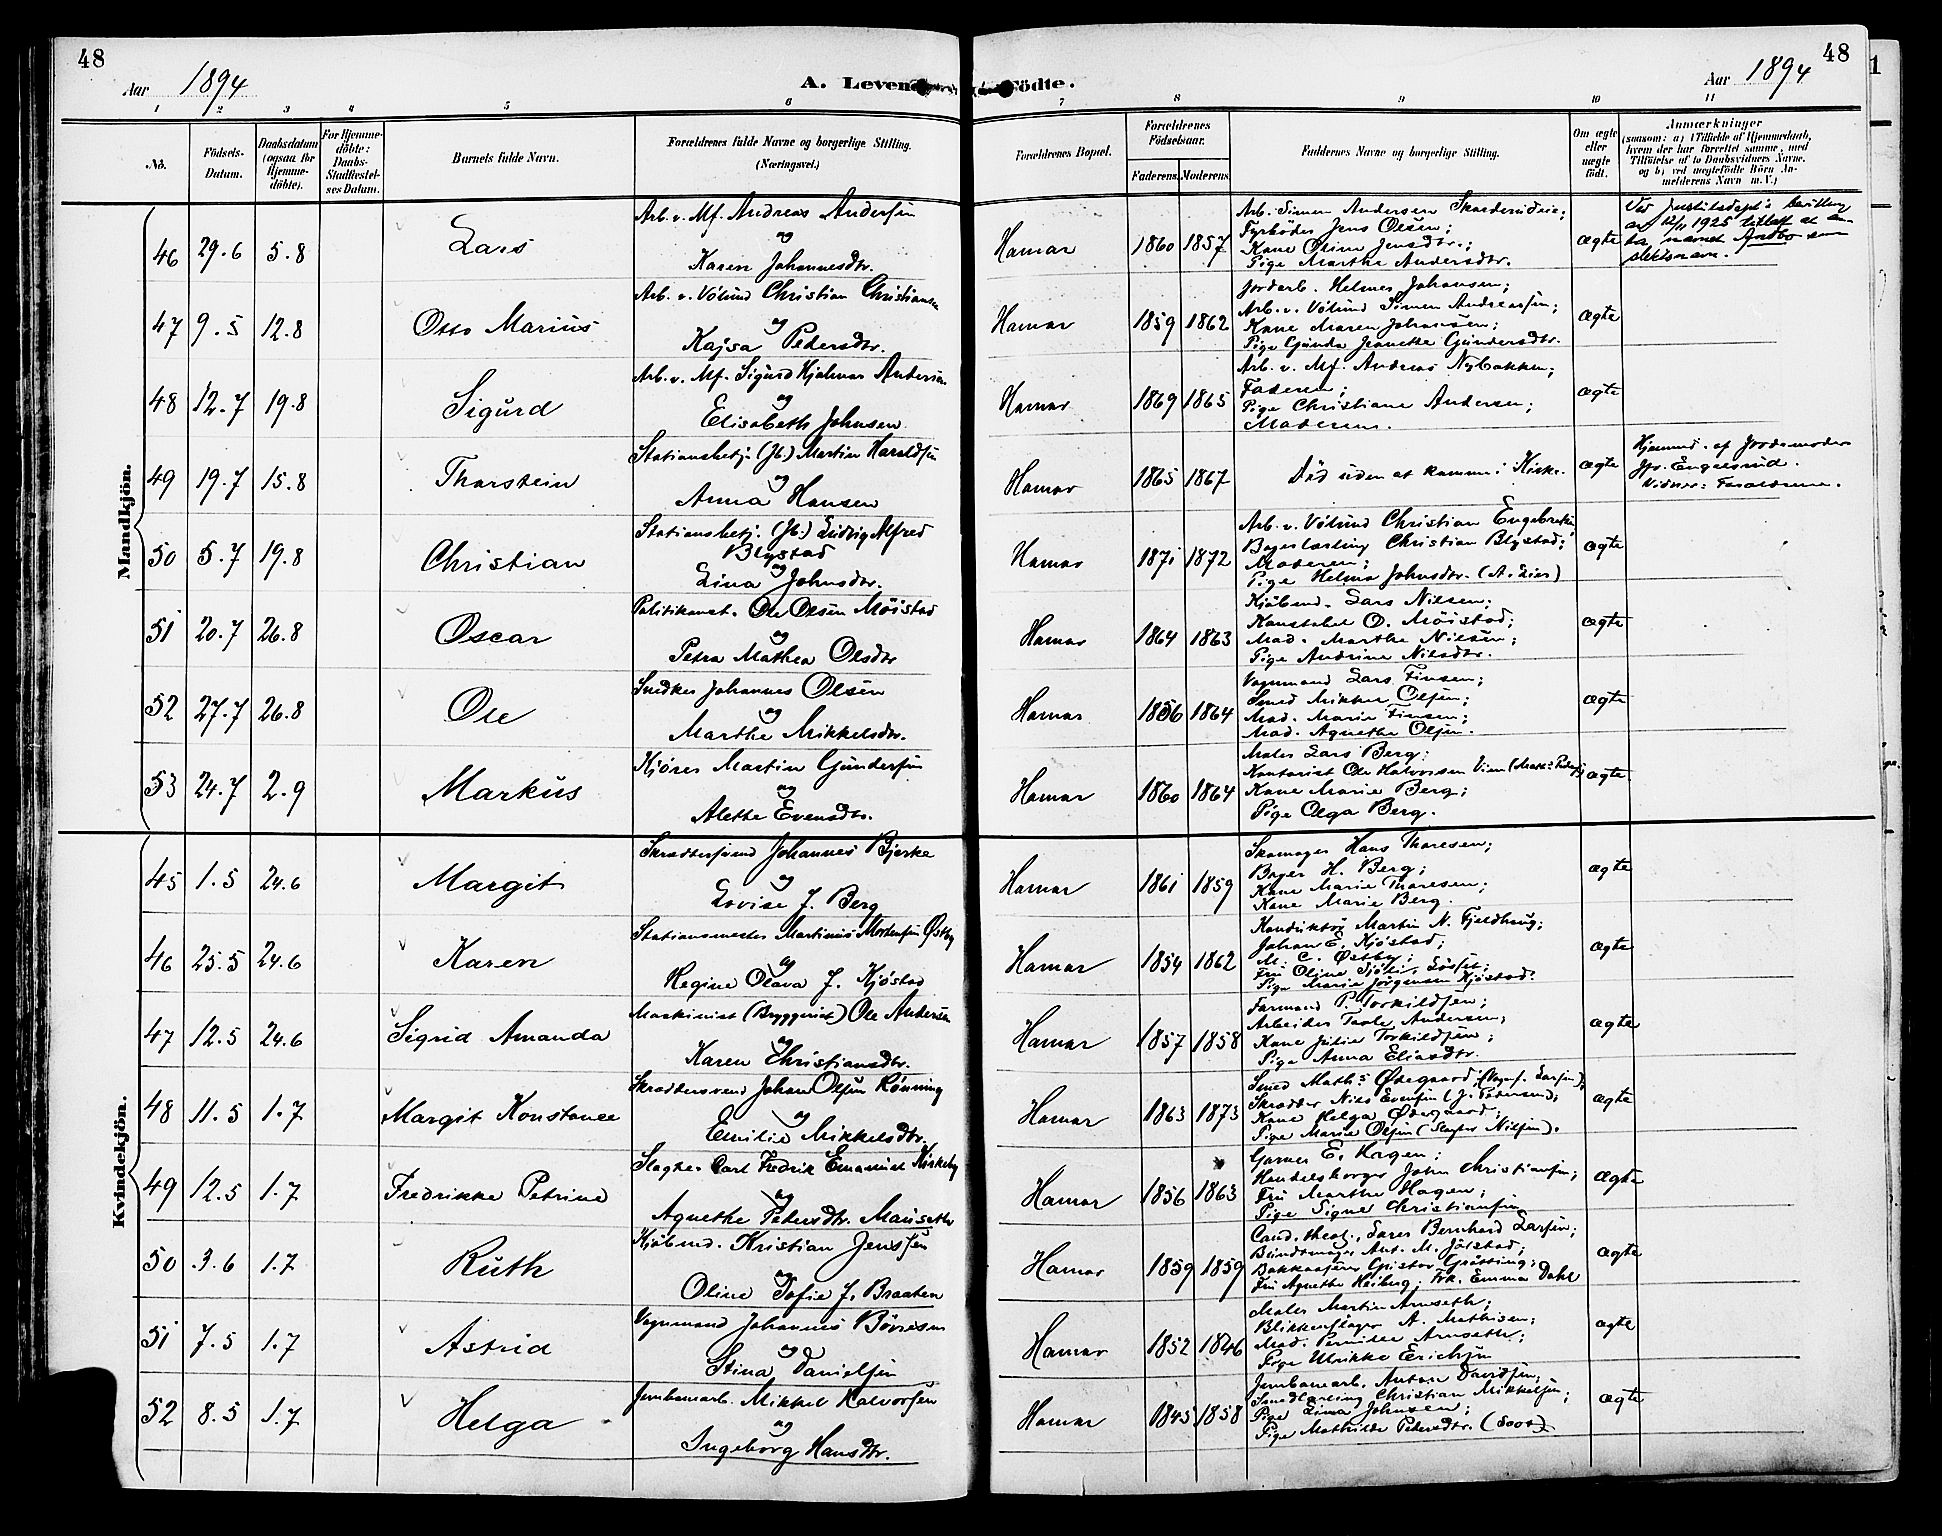 48
Aar 1894
A. Levende
Födte.
Aar 1894
48
1
1 2 3 4 5 6 7 8 9 10 11
No.
Födsels-Datum.
Daabsdatum (ogsaa for Hjemme-döbte).
For Hjemme-döbte: Daabs-Stadfæstel-ses Datum.
Barnets fulde Navn.
Forældrenes fulde Navne og borgerlige Stilling. (Næringsvei.)
Forældrenes Bopæl.
Forældrenes Födselsaar.
Faderens. Moderens.
Faddernes Navne og borgerlige Stilling.
Om ægte eller uægte født.
Anmærkninger
(saasom: a) i Tilfælde af Hjemmedaab, hvem der har forrettet samme, med Tilföielse af to Daabsvidners Navne, og b) ved uægtefödte Börn An-melderens Navn m. V.)
Mandkjön.
46 29.6 5.8 Lars
Arb. v. Mf. Andreas Andersen
og
Karen Johannesdtr.
Hamar 1860 1857
Arb. Simen Andersen
Fyrböder Jens Olsen;
Kone Oline Jensdtr.;
Pige Marthe Andersdtr.
ægte
Ved Justitsdept's bevilling
av 12/11 1925 tillatt at an-
ta navnet Andbo som
slektsnavn.
47 9.5 12.8 Otto Marius
Arb. v. Völund Christian Christiansen
og
Kajsa Pedersdtr.
Hamar 1859 1862
Jordarb. Helmer Johansen;
Arb. v. Völund Simen Andreassen;
Kone Maren Johansen;
Pige Gunda Jeanette Gundersdtr.
ægte
48 12.7 19.8 Sigurd
Arb. v. Mf. Sigurd Hjalmar Andersen
og
Elisabeth Johnsen
Hamar 1869 1865
Arb. v. Mf. Andreas Nybakken;
Faderen;
Pige Christiane Andersen;
Moderen.
ægte
49 19.7 15.8 Thorstein
Stationsbetj. (Jb.) Martin Haraldsen
og
Anna Hansen
Hamar 1865 1867
Död uden at komme i Kirke.
ægte
Hjemmed. af Jordemoder
Engelsrud.
Vidner: Forældrene.
50 5.7 19.8 Christian
Stationsbetj. (Jb.) Ludvig Alfred
Blystad
og
Lina Johnsdtr.
Hamar 1871 1872
Arb. v. Völund Christian Engebretsen
Bagerlærling Christian Blystad;
Moderen;
Pige Helma Johnsdtr. (A. Lier)
ægte
51 20.7 26.8 Oscar
Politikonst. Ole Olsen Möistad
og
Petra Mathea Olsdtr
Hamar 1864 1863
Kjöbmd. Lars Nilsen;
Konstabel O. Möistad;
Mad. Marthe Nilsen;
Pige Andrine Nilsdtr.
ægte
52 27.7 26.8 Ole
Snedker Johannes Olsen
og
Marthe Mikkelsdtr.
Hamar 1856 1864
Vognmand Lars Finsen;
Smed Mikkel Olsen;
Mad. Marie Finsen;
Mad. Agnethe Olsen.
ægte
53 24.7 2.9 Markus
Kjörer Martin Gundersen
og
Alethe Evensdtr.
Hamar 1860 1864
Maler Lars Berg;
Kontorist Ole Halvorsen
Kone Marie Berg;
Pige Olga Berg.
ægte
Kvindekjön.
45 1.5 24.6 Margit
Skræddersvend Johannes Bjerke
og
Lovise J. Berg
Hamar 1861 1859
Skomager Hans Thoresen;
Bager H. Berg;
Kone Marie Thoresen;
Kone Marie Berg.
ægte
46 25.5 24.6 Karen
Stationsmester Martinus Mortensen Østby
og
Regine Olava J. Kjöstad
Hamar 1854 1862
Konduktör Martin N. Fjeldhaug;
Johan E. Kjöstad;
M. C. Østby;
Fru Oline
Pige Marie Jörgensen Kjöstad.
ægte
47 12.5 24.6 Sigrid Amanda
Maskinist (Bryggeriet) Ole Andersen
og
Karen Christiansdtr.
Hamar 1857 1858
Formand P. Torkildsen;
Arbeider Andersen;
Kone Julie Torkildsen;
Pige Anna Eliasdtr.
ægte
48 11.5 1.7 Margit Konstance
Skræddersvend Johan Olsen Rönning
og
Emilie Mikkelsdtr.
Hamar 1863 1873
Smed Math. Ødegaard,
Skrædder Nils Evensen (J. Pedersen);
Kone Helga Ødegaard;
Pige Marie Olsen (Slagter Nilsen).
ægte
49 12.5 1.7 Fredrikke Petrine
Slagter Carl Fredrik Emanuel Kirkeby
og
Agnethe Petersdtr. Mauseth
Hamar 1856 1863
Garver E. Hagen;
Handelsborger John Christiansen;
Fru Marthe Hagen;
Pige Signe Christiansen
ægte
50 3.6 1.7 Ruth
Kjöbmd. Kristian Jenssen
og
Oline Sofie J. Braaten
Hamar 1859 1859
Cand. theol. Lars Bernhard Larsen;
Buntmager Ant. M. Jölstad;
Gröttting;
Fru Agnethe Heiberg; Frk. Emma Dahl
ægte
51 7.5 1.7 Astrid
Vognmand Johannes Börresen
og
Stina Danielsen
Hamar 1852 1846
Maler Martin Arneseth;
Blikkenslager A. Mathisen;
Mad. Pernille Arneseth;
Pige Ulrikke Erichsen
ægte
52 8.5 1.7 Helga
Jernbanearb. Mikkel Halvorsen
og
Ingeborg Hansdtr.
Hamar 1845 1858
Jernbanearb. Anton Davidsen;
Smedlærling Christian Mikkelsen;
Pige Lina Johnsen;
Pige Mathilde Pedersdtr.
ægte